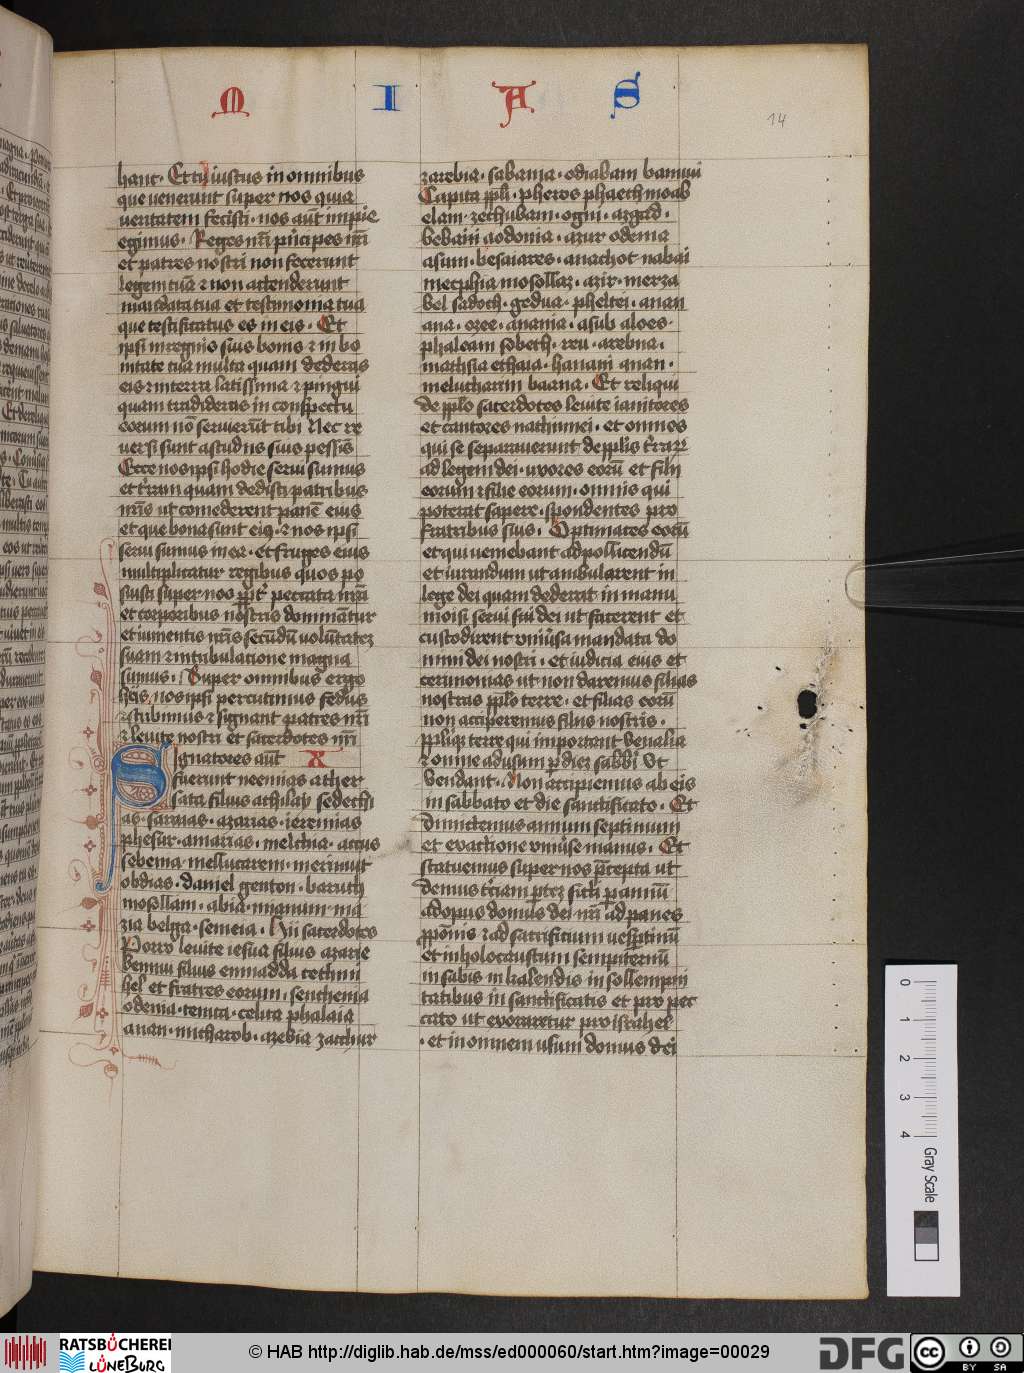 M I A S
14
hanc. Et tu iustus in omnibus
que uenerunt super nos quia
ueritatem fecisti. nos aūt impie
egimus. Reges nr̄i pͥncipes nr̄i
et patres nostri non fecerunt
legem tuā ⁊ non attenderunt
mandata tua et testimonia tua
que testificatus es in eis. Et
ipsi in regnis suis bonis ⁊ in bo
nitate tua multa quam dederas
eis ⁊ in terra latissima ⁊ pingui
quam tradideras in conspectu
eorum nō seruierūt tibi Nec re
uersi sunt a studiis suis pessīs
Ecce nos ipsi hodie serui sumus
et t̄ram quam dedisti patribus
nr̄is ut comederent panē eius
et que bona sunt eiꝰ. ⁊ nos ipsi
serui sumus in ea. et fruges eius
multiplicatur regibus quos po
suisti super nos ꝓpt̄ peccata nr̄a
et corporibus nostris dominātur
et iumentis nr̄is secūdū volūtatez
suam ⁊ in tribulatione magna
sumus. Super omnibus ergo
hiis. nos ipsi percutimus fedus
⁊ scribimus ⁊ signant patres nr̄i
⁊ leuite nostri et sacerdotes nr̄i
Signatores aūt X
fuerunt neemias ather
sata filius athilay sedechi
as. saraias. azarias. ieremias
phesur. amarias. melchia. actus
sebenia. mellucarem. merimut
obdias. daniel genton. baruch
mosollam. abia. mianum ma
zia belga. semeia. Hii sacerdotes
Porro leuite iesua filius azarie
bennui filius enmadda cethmi
hel et fratres eorum. senchenia
odenia. tenita. celita phalaia
anan. micharob. azebia zacchur
zarebia. sabania. odiabam baniuu
Capita ppl̄i. pheros phaethmoab
elam. zechubam. ogni. azgad.
bebaiii aodonia. azur odenia
asum. besaiares. anathot nabai
mecphia mosollaz. azir. merza
bel sadoch. gedua. pheltei. anan
ana. ozee. anania. asub aloes.
phaleam sobeth. reu. arebna.
mathsia ethaia. hanani anan.
meluchann baana. Et reliqui
de pplo sacerdotes leuite ianitores
et cantores nathinnei. et omnes
qui se separauerunt de ppl̄is t̄rarꝝ
ad legem dei. vxores eorū et filii
eorum ⁊ filie eorum. omnis qui
poterat sapere. spondentes pro
fratribus suis. Optimates eorū
et qui ueniebant ad pollicendū
et iurandum ut ambularent in
lege dei quam dederat in manu
moisi serui sui dei ut facerent et
custodirent vniūsa mandata do
mini dei nostri. et iudicia eius et
cerimonias ut non daremus filias
nostras ppl̄o terre. et filias eorū
non acciperemus filiis nostris.
Ppl̄iqꝫ terre qui important venalia
⁊ omne ad usum ꝑ diez sabbi ut
vendant. Non accipiemus ab eis
in sabbato et die sanctificato. Et
dimittemus annum septimum
et exactione vniūse manus. Et
statuemus super nos p̄cepta ut
demus t̄ciam ꝑtez sicli ꝑ annū
ad opus domus dei nr̄i ad panes
ꝓpōnis ⁊ ad sacrificium uesptinū
et in holocaustum sempiternū
in sabīs in kalendis in sollempni
tatibus in sanctificatis et pro pec
cato ut exoraretur pro israhel
. et in omnem usum domus dei
0 1 2 3 4
Gray Scale
RATSBÜCHEREI
LÜNEBURG
© HAB http://diglib.hab.de/mss/ed000060/start.htm?image=00029
DFG
cc BY SA